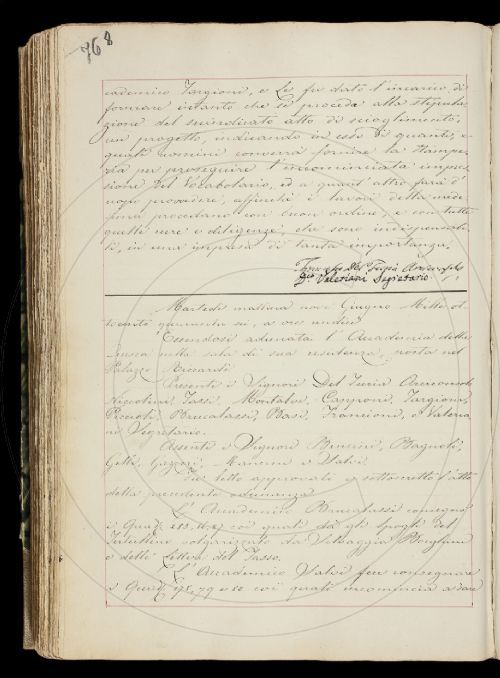 768
cademico Targioni, e Le fu dato l'incarico di
formare intanto che si proceda alla stipula-
zione del suindicato atto di scioglimento,
un progetto, indicando in esso di quanti, e
quali uomini converrà fornire la Stampe-
ria per proseguire l'incominciata impres-
sione del Vocabolario, ed a quant'altro farà d'
uopo provvedere, affinchè i lavori della mede-
sima procedano con buon ordine, e con tutte
quelle cure e diligenze, che sono indispensabi-
li, in una impresa di tanta importanza.
Del Furia Arciconsolo
Valeriani Segretario
Martedì mattina nove Giugno Mille ot-
tocento quaranta sei, a ore undici
Essendosi adunata l'Accademia della
Crusca nella sala di sua residenza, posta nel
Palazzo Riccardi
Presenti i Signori Del Furia Arciconsolo
Niccolini, Tassi, Montalvi, Capponi, Targioni,
Becucalassi, Basi, Francioni, e Valeria-
ni Segretario.
Assenti i Signori Bencini, Bagnoli,
Gelli, Gazzeri, Mancini e Salvi.
Fu letto approvato e sottoscritto l'atto
della precedente adunanza
L'Accademico Brucalassi consegna
i Quad. coi quali dà gli spogli del
Tertulliano volgarizzato da Selvaggia Borghini
e delle Lettere del Tasso.
E l'Accademico Salvi fece consegnare
i Quad. 79 e 80 coi quali incomincia a dare